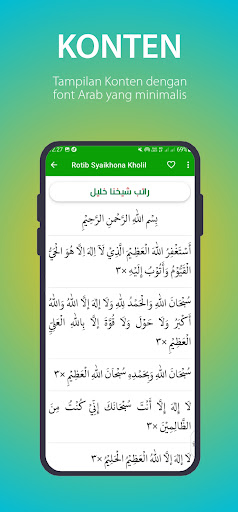 KONTEN
Tampilan Konten dengan
font Arab yang minimalis
2:27
Rotib Syaikhona Kholil
راتب شيخنا خليل
بِسْمِ اللهِ الرَّحْمٰنِ الرَّحِيْمِ
أَسْتَغْفِرُ اللهَ الْعَظِيْمَ الَّذِيْ لَآ اِلٰهَ إِلَّا هُوَ الْحَيُّ
الْقَيُّوْمُ وَأَتُوْبُ إِلَيْهِ ×٣
سُبْحَانَ اللهِ وَالْحَمْدُ لِلّٰهِ وَلَا إِلٰهَ إِلَّا اللهُ وَاللهُ
أَكْبَرُ وَلَا حَوْلَ وَلَا قُوَّةَ إِلَّا بِاللهِ الْعَلِيِّ
الْعَظِيْمِ ×٣
سُبْحَانَ اللهِ وَبِحَمْدِهِ سُبْحَانَ اللهِ الْعَظِيْمِ ×٣
لَا إِلٰهَ إِلَّا أَنْتَ سُبْحَانَكَ إِنِّيْ كُنْتُ مِنَ
الظَّالِمِيْنَ ×٣
لَا إِلٰهَ إِلَّا اللهُ الْعَظِيْمُ الْحَلِيْمُ ×٣